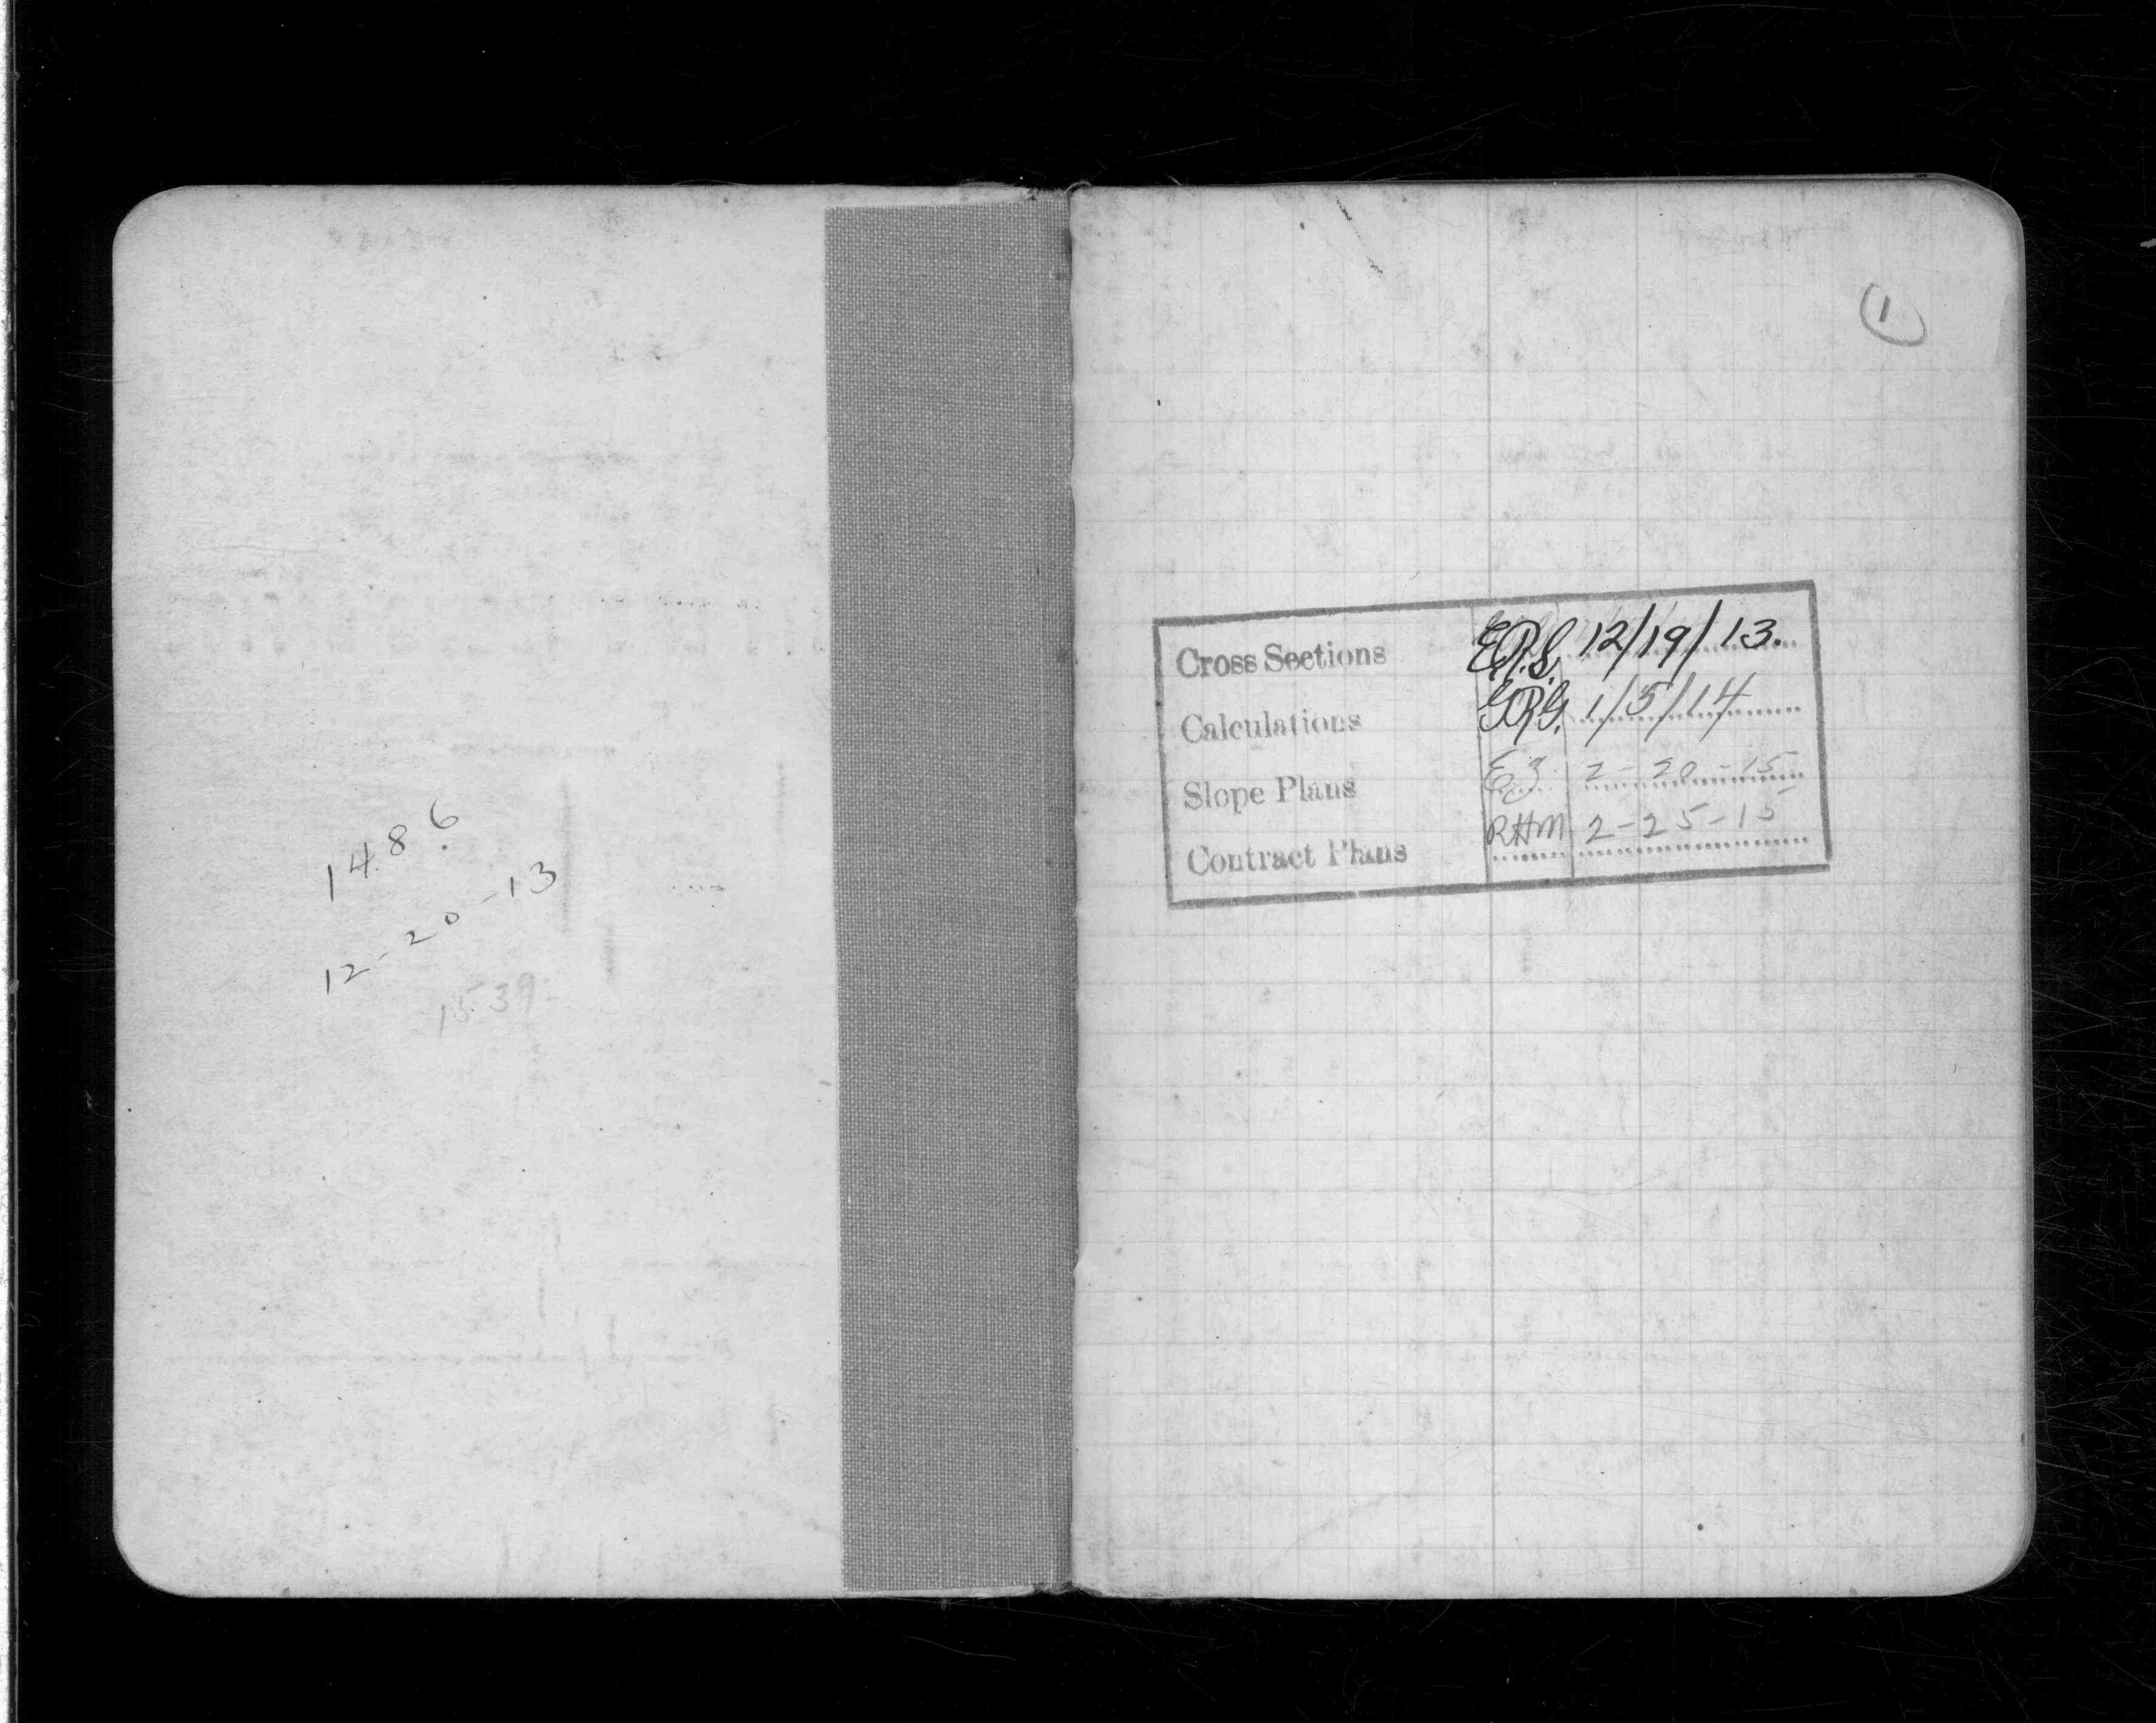 1486
12-20-13
1539
1
Cross Sections E.R.S. 12/19/13.
Calculations G.R.G. 1/5/14
Slope Plans 2-20-15
Contract Plans RHM 2-25-15